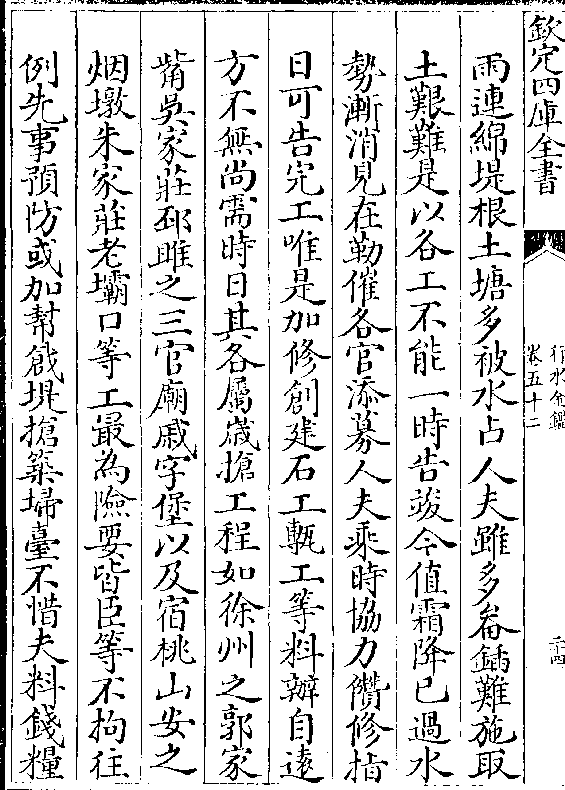 欽定四庫全書
行水金鑑
卷五十二
二十四
雨連綿堤根土塘多被水占人夫雖多畚鍤難施取
土艱難是以各工不能一時告竣今值霜降已過水
勢漸消見在勒催各官添募人夫乘時協力儹修指
日可告完工唯是加修創建石工甎工等料辦自遠
方不無尚需時日其各屬歲搶工程如徐州之郭家
觜吳家莊邳雎之三官廟戚字堡以及宿桃山安之
烟墩朱家莊老壩口等工最為險要皆臣等不拘往
例先事預防或加幫戧堤搶築埽臺不惜夫料錢糧